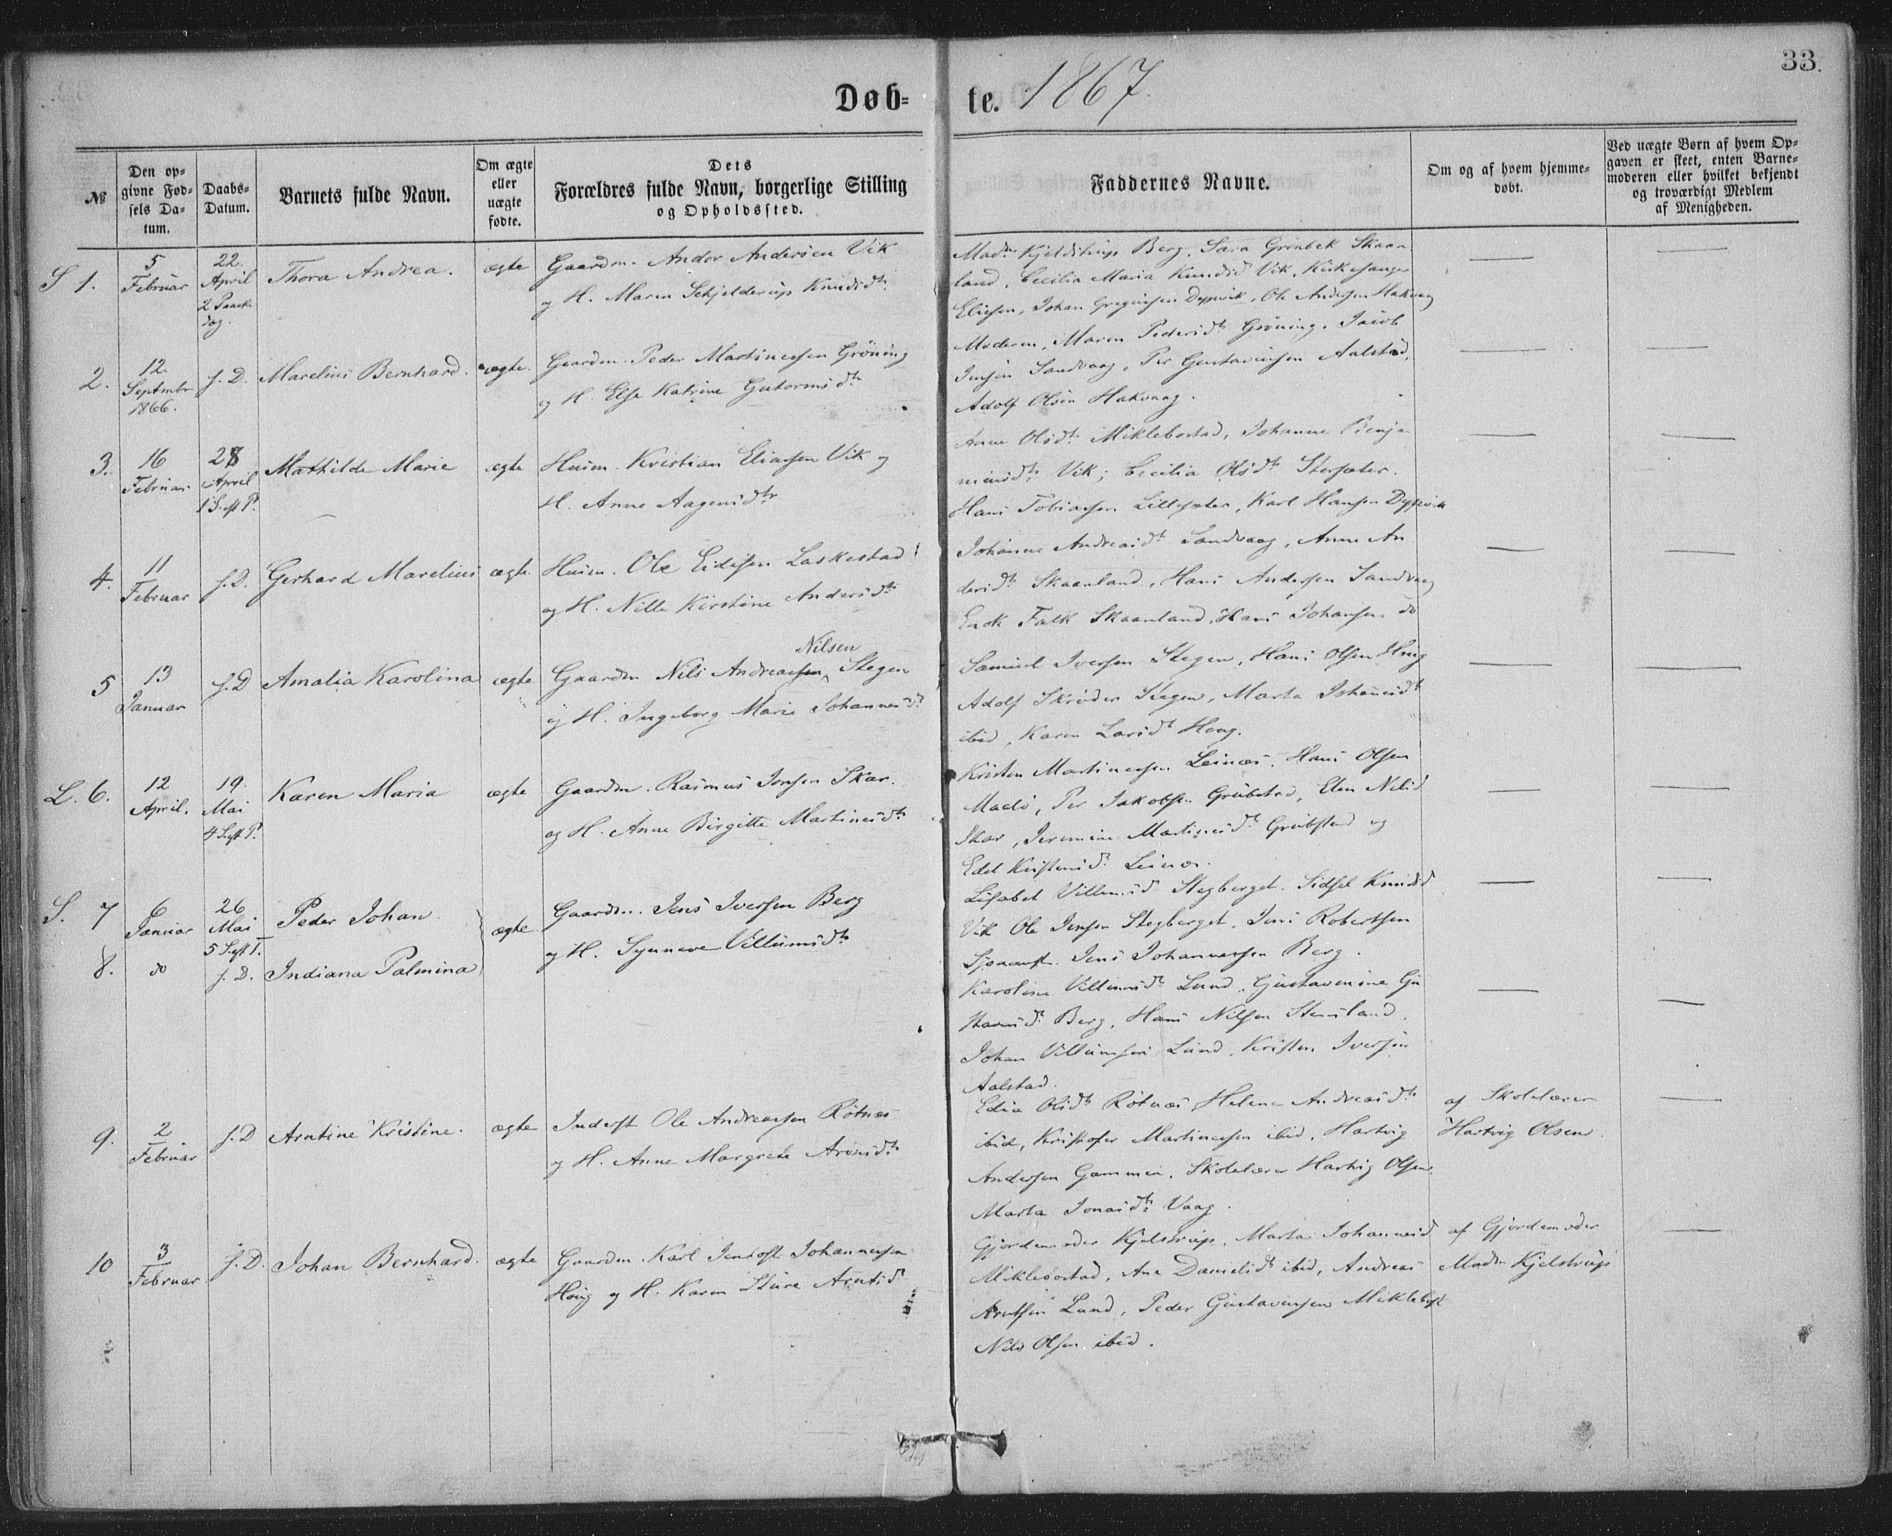 33.
Døb= te. 1867.
№
Den op-
givne Fød-
sels Da-
tum.
Daabs-
Datum.
Barnets fulde Navn.
Om ægte
eller
uægte
fødte.
Dets
Forældres fulde Navn, borgerlige Stilling
og Opholdssted.
Faddernes Navne.
Om og af hvem hjemme-
døbt.
Ved uægte Børn af hvem Op-
gaven er skeet, enten Barne-
moderen eller hvilket bekjendt
og troværdigt Medlem
af Menigheden.
S 1.
5
Februar
22.
April
2 Paask
dag.
Thora Andrea.
ægte
Gaardm. Andor Andersen Vik
og H. Maren Schjelderup Knudsdtr
Madm Kjeldstrup Berg, Sara Grønbek Skaan
land, Cecilia Maria Knudsdtr Vik, Kirkesanger
Eliesen, Johan Gregusen Dypvik, Ole Andersen Hakvag
2.
12
Septembr
1866.
s. D.
Marelius Bernhard.
ægte
Gaardm. Peder Martinussen Grøning
og H. Else Katrine Gutormsdtr
Moderen, Maren Pedersdtr Grøning, Jacob
Jensen Sandvaag, Per Gustavussen Aalstad,
Adolf Olsen Hakvaag.
3.
16
Februar
28
April
1 S. eft P.
Mathilde Marie
ægte
Husm. Kristian Eliassen Vik og
H. Anne Aagensdtr
Anne Olsdtr Miklebostad, Johanne Benja
minsdtr Vik, Cecilia Olsdtr Storsæter.
Hans Tobiassen Lillesæter, Karl Hansen Dypvik
4.
11
Februar
s. D.
Gerhard Marelius
ægte
Husm. Ole Eidissen Laskestad
og H. Nille Kirstine Andersdtr
Johanne Andreasdtr Sandvaag, Anne An
dersdtr Skaanland, Hans Andersen Sandvaag
Enok Falk Skaanland, Hans Johansen do
5
13
Januar
s. D
Amalia Karolina
ægte
Nilsen
Gaardm Nils Andreassen, Stegen
og H. Ingeborg Marie Johannesdtr
Samuel Iversen Stegen, Hans Olsen Haug
Adolf Skrøder Stegen, Marta Johannesdt
ibid, Karen Larsdt Haug.
L. 6.
12
April.
19.
Mai
4 S eft P.
Karen Maria
ægte
Gaardm. Rasmus Jonsen Skar.
og H. Anne Birgitte Martinusdtr
Kristen Martinussen Leines, Hans Olsen
Maelø, Per Jakobsen Grøbstad, Elen Nilsd
Skar, Jeremine Martinusdt Grøbstad og
Edel Kristensdt Leines.
S. 7
6
Januar
26
Mai
5 S eft P.
Peder Johan
ægte
Gaardm. Jens Iversen Berg
og H. Synneve Villumsdtr
Lisabet Villumsd Stegberget. Sidsel Knudsd
Vik Ole Jensen Stegberget, Jens Robertsen
Jens Johannessen Berg.
8.
do
s. D.
Indiana Palmina
Karoline Villumsdt Lund, Gustavmine Gu
stavusdt Berg, Hans Nilsen Stensland,
Johan Villumsen Lund, Kristen Iversen
Aalstad.
9.
2
Februar
s. D
Arntine Kristine.
ægte
Inderst Ole Andreassen Røtnes
og H. Anne Margrete Aronsdtr
Edia Olsdtr Røtnes, Helene Andreasdtr
ibid, Kristofer Martinussen ibid, Hartvig
Andersen Gammen, Skolelærer Hartvig Olsen
Marta Jonasdtr Vaag.
af Skolelærer
Hartvig Olsen.
10
3
Februar
s. D.
Johan Bernhard.
ægte
Gaardm. Karl Jentoft Johannessen
Haug og H. Karen Sture Arntsd.
Gjordemoder Kjelstrup, Marta Johannesd
Miklebostad, Ane Danielsdt ibid, Andreas
Arntsen Lund, Peder Gustavussen Miklebost
Nils Olsen ibid.
af Gjordemoder
Madm Kjelstrup